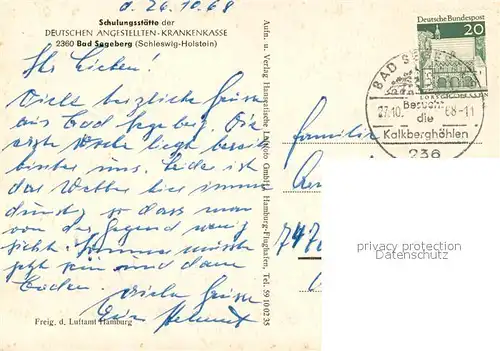 d. 26.10.68
Schulungsstätte der
DEUTSCHEN ANGESTELLTEN-KRANKENKASSE
2360 Bad Segeberg (Schleswig-Holstein)
Ihr Lieben!
Viele herzliche Grüsse
aus Bad Segeberg. Die
erste Woche liegt bereits
hinter uns. Leider ist
das Wetter hier immer
dunstig so dass man
von der Gegend wenig
sieht. Sommer müsste
jetzt sein und dann
baden. Viele Grüsse
Euer Helmut
Freig. d. Luftamt Hamburg
Aufn. u. Verlag Hanseatische Luftfoto GmbH, Hamburg-Flughafen, Tel. 59 10 02 35
Deutsche Bundespost
20
LORSCH/HESSEN
BAD
27.10. 68-11
Besucht
die
Kalkberghöhlen
236
Familie
privacy protection
Datenschutz